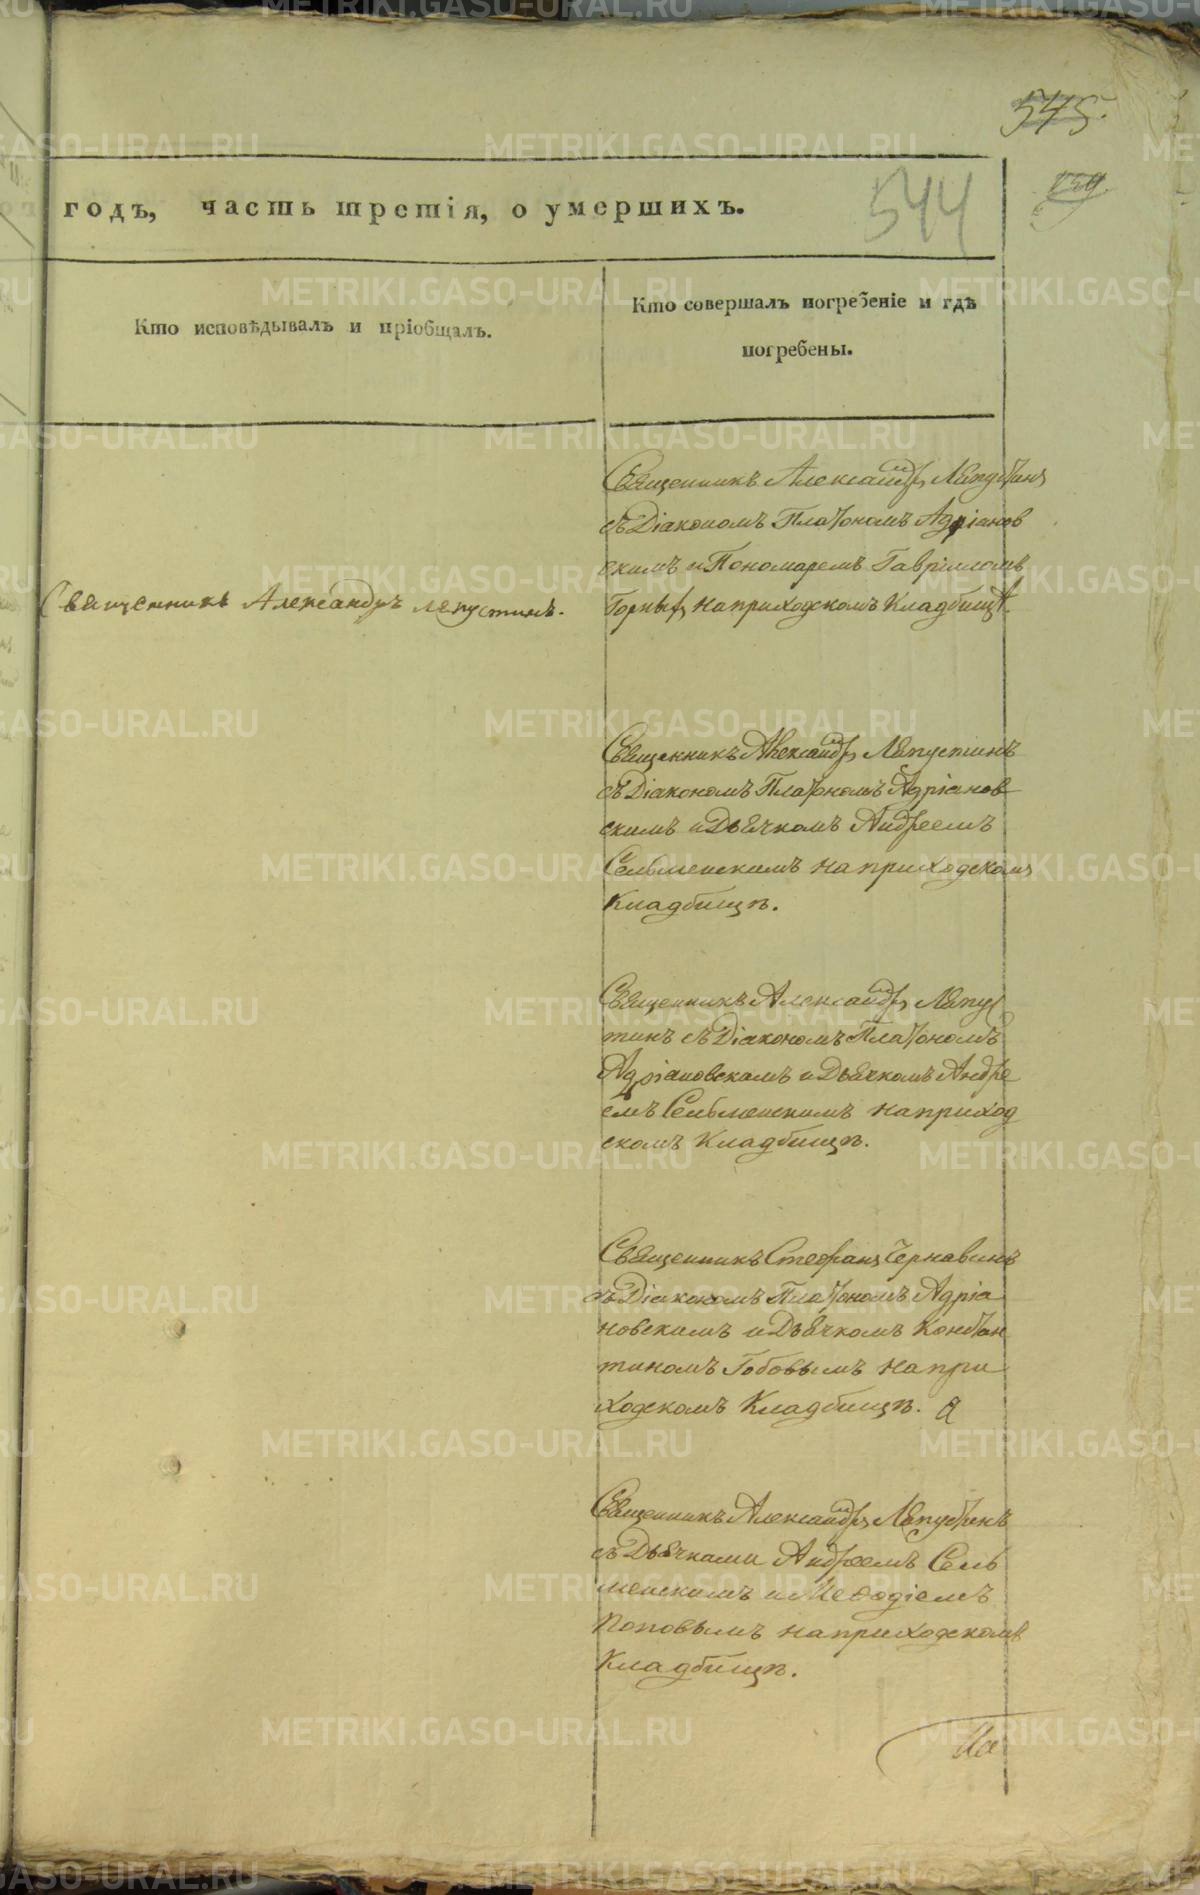 545.
годъ, часть третія, о умершихъ.
544
Кто исповѣдывалъ и пріобщалъ.
Кто совершалъ погребеніе и гдѣ
погребены.
Священникъ Александръ Ляпустинъ
съ Діакономъ Платономъ Адріанов
скимъ и Пономаремъ Гавріиломъ
Горныхъ на приходскомъ Кладбищѣ.
Священникъ Александръ Ляпустинъ.
Священникъ Александръ Ляпустинъ
съ Діакономъ Платономъ Адріанов
скимъ и Дьячкомъ Андреемъ
Сельменскимъ на приходскомъ
Кладбищѣ.
Священникъ Александръ Ляпус
тинъ съ Діакономъ Платономъ
Адріановскимъ и Дьячкомъ Андре
емъ Сельменскимъ на приход
скомъ Кладбищѣ.
Священникъ Стефанъ Чернавинъ
съ Діакономъ Платономъ Адріа
новскимъ и Дьячкомъ Констан
тиномъ Гобовымъ на при
ходскомъ Кладбищѣ.
Священникъ Александръ Ляпустинъ
съ Дьячками Андреемъ Сель
менскимъ и Меѳодіемъ
Поповымъ на приходскомъ
Кладбищѣ.
METRIKI.GASO-URAL.RU